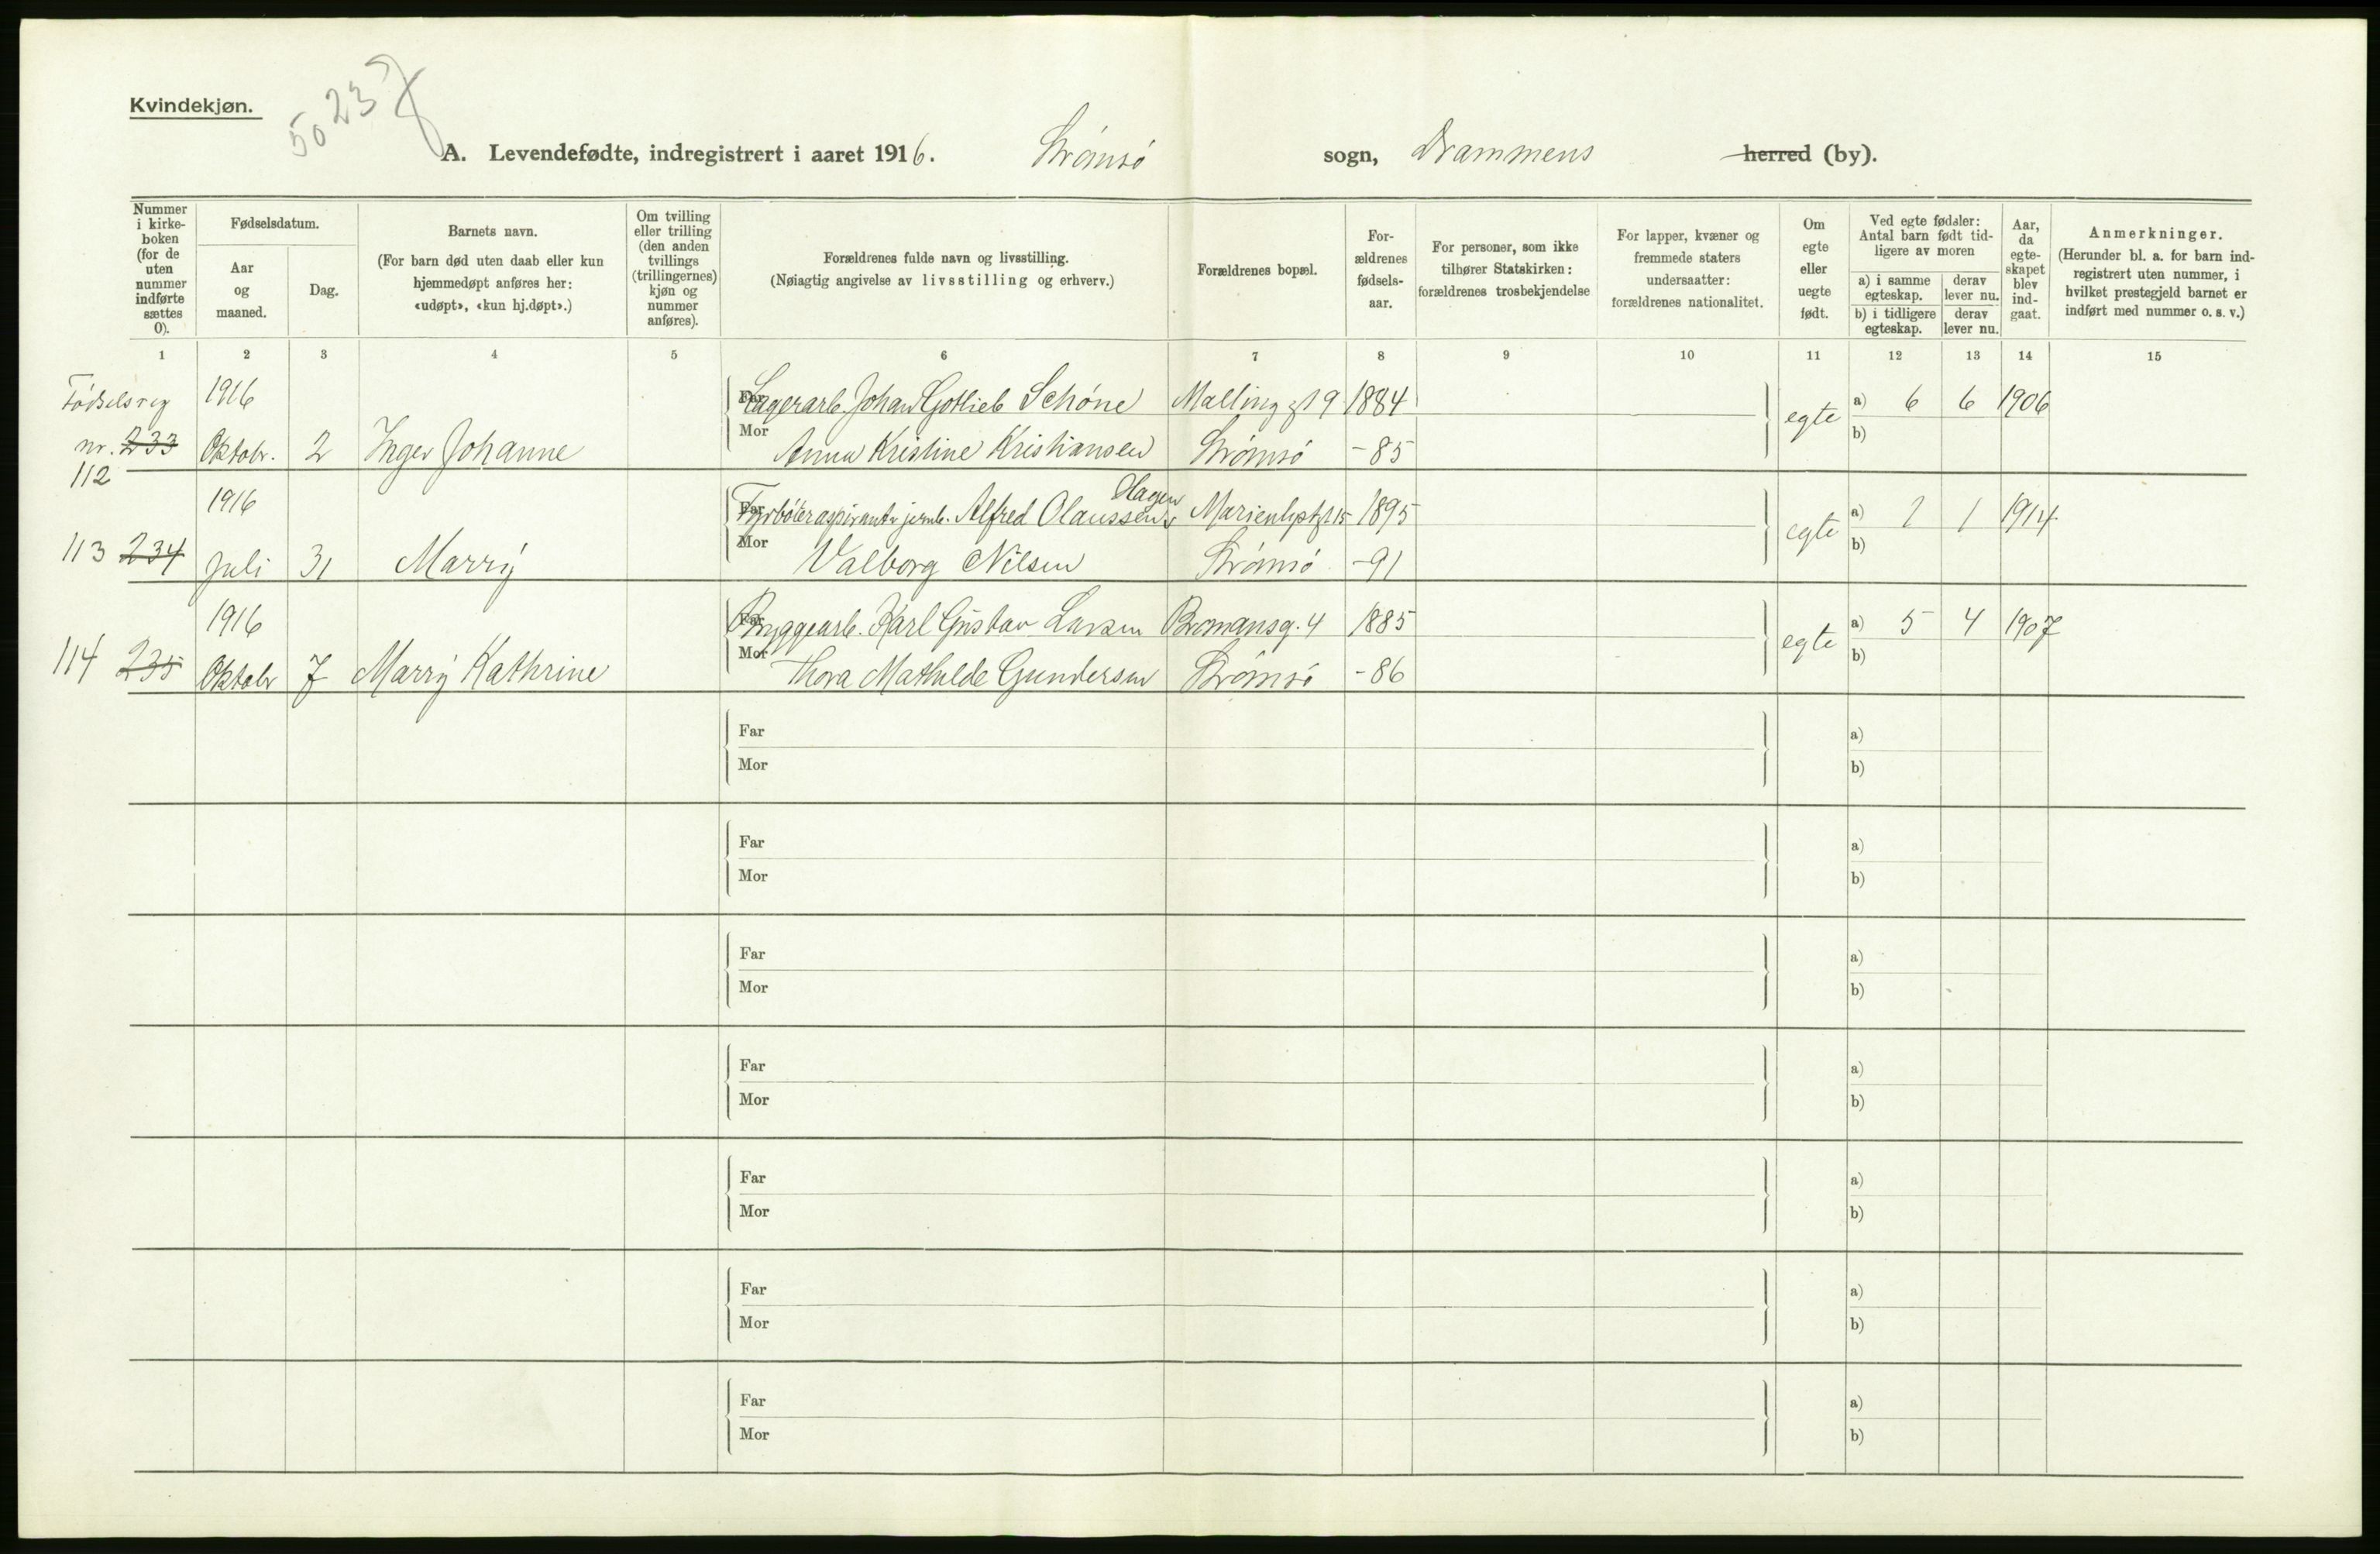 Kvindekjøn.
50 237
A. Levendefødte, indregistrert i aaret 1916. Strømsø sogn, Drammens herred (by).
Nummer i kirke-boken (for de uten nummer indførte sættes 0).
Fødselsdatum.
Aar og maaned.
Dag.
Barnets navn.
(For barn død uten daab eller kun hjemmedøpt anføres her: «udøpt», «kun hj.døpt».)
Om tvilling eller trilling (den anden tvillings (trillingernes) kjøn og nummer anføres).
Forældrenes fulde navn og livsstilling.
(Nøiagtig angivelse av livsstilling og erhverv.)
Forældrenes bopæl.
For-ældrenes fødsels-aar.
For personer, som ikke tilhører Statskirken: forældrenes trosbekjendelse
For lapper, kvæner og fremmede staters undersaatter: forældrenes nationalitet.
Om egte eller uegte født.
Ved egte fødsler: Antal barn født tid-ligere av moren
a) i samme egteskap.
derav lever nu.
b) i tidligere egteskap.
derav lever nu.
Aar, da egte-skapet blev ind-gaat.
Anmerkninger.
(Herunder bl. a. for barn ind-registrert uten nummer, i hvilket prestegjeld barnet er indført med nummer o. s. v.)
1 2 3 4 5 6 7 8 9 10 11 12 13 14 15
Fødselsreg 1916 Far Lagerarb. Johan Gotlieb Schøne Malling gt 9 1884 egte a) 6 6 1906
nr. 233 Oktobr. 2 Inger Johanne Mor Anna Kristine Kristiansen Strømsø -85 b)
112
Hagen
1916 Far Fyrbøteraspirant v jernb. Alfred Olaussen Marienlystgt 15 1895 egte a) 1 1 1914
113 234 Juli 31 Marry Mor Valborg Nilsen Strømsø -91 b)
1916 Far Bryggearb. Karl Gustav Larsen Bromansg. 4 1885 egte a) 5 4 1907
114 235 Oktobr 7 Marry Kathrine Mor Thora Mathilde Gundersen Strømsø -86 b)
Far a)
Mor b)
Far a)
Mor b)
Far a)
Mor b)
Far a)
Mor b)
Far a)
Mor b)
Far a)
Mor b)
Far a)
Mor b)